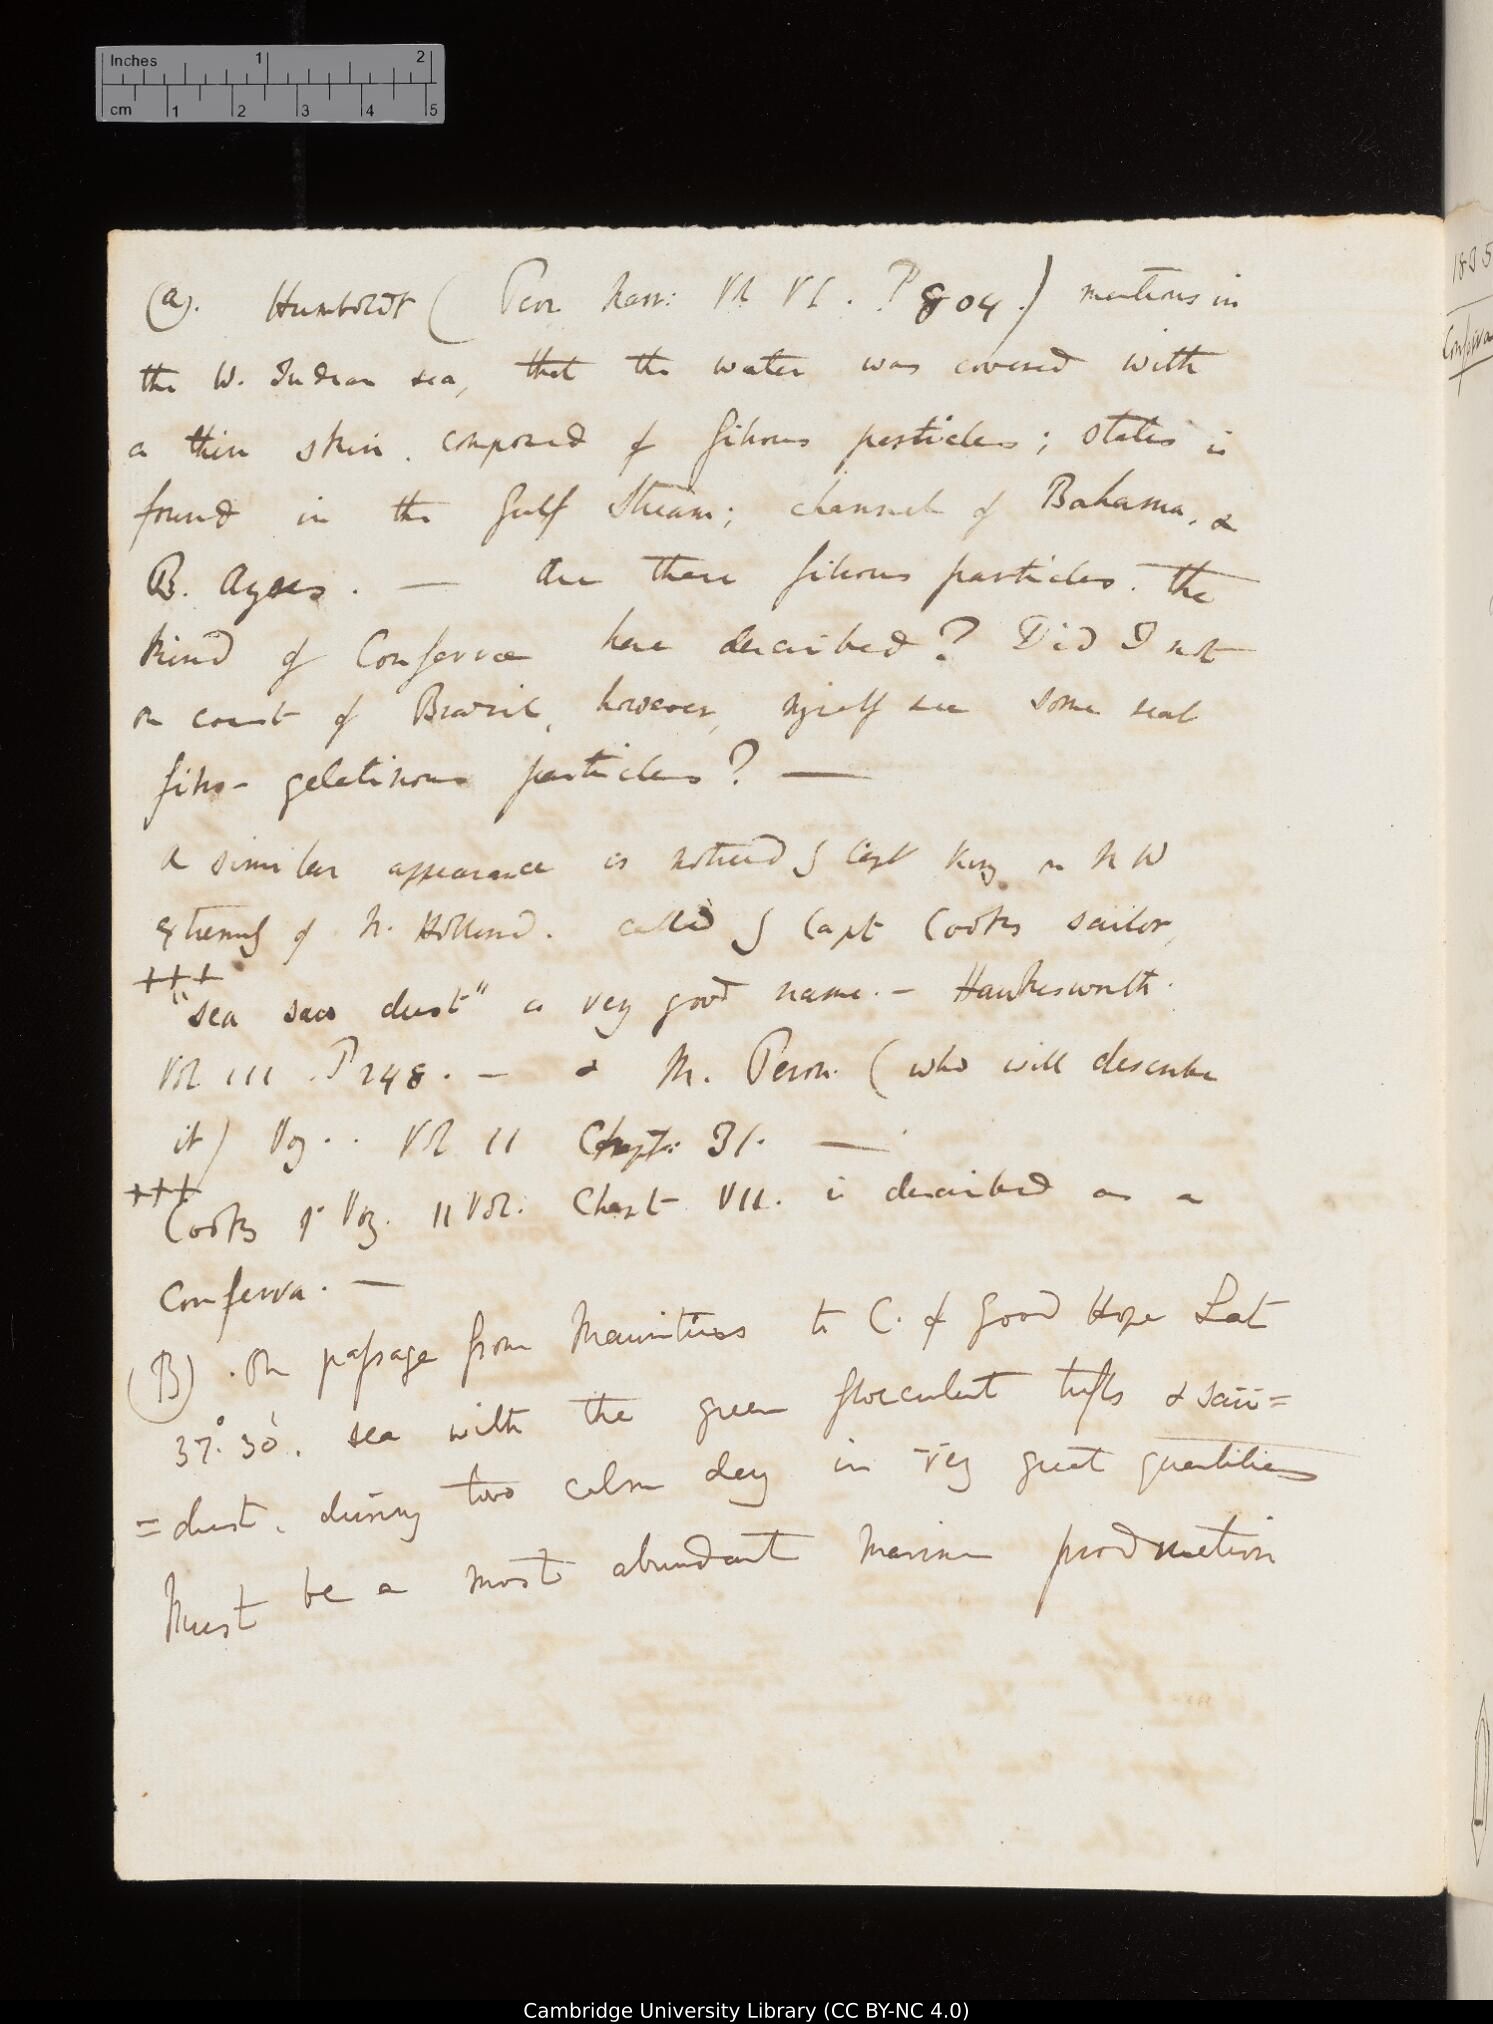 Inches 1 2
cm 1 2 3 4 5
(a). Humboldt ( Per Narr: Vol VI. P 804.) mentions in
the W. Indian sea, that the water was covered with
a thin skin. composed of fibrous particles; states is
found in the Gulf Stream; channel of Bahama, &
B. Ayres. — Are these fibrous particles. the
kind of Confervæ here described? Did I not
on coast of Brazil, however, myself see some real
fibro- gelatinous particles? —
A similar appearance is noticed by Capt King on N W
extremity of N. Holland. called by Capt Cooks sailor,
+++
"sea saw dust" a very good name. — Hawkesworth.
Vol III. P 248. — & M. Peron. (who will describe
it) Voy.. Vol II Chapt: 31. —
+++
Cooks 1st Voy. II Vol. Chapt VII. is described as a
Conferva. —
(B). On passage from Mauritius to C. of Good Hope Lat
37°.30'. sea with the green flocculent tufts & saw=
=dust. during two calm day in very great quantities
Must be a most abundant marine production
1835
Conferva
Cambridge University Library (CC BY-NC 4.0)